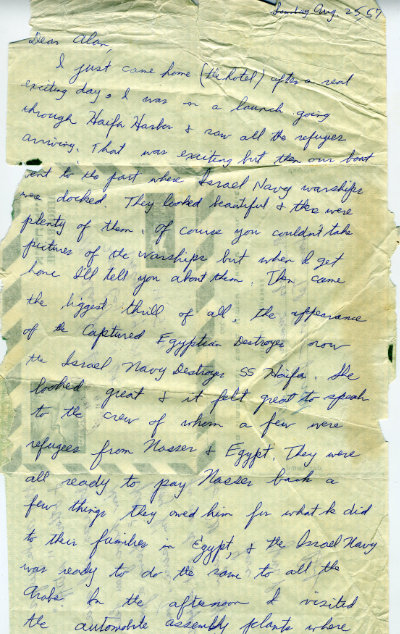 Sunday Aug. 25, 57
Dear Alan,
I just came home (the hotel) after a real
exciting day. I was in a launch going
through Haifa Harbor & saw all the refugees
arriving. That was exciting but then our boat
went to the part where Israel Navy warships
were docked. They looked beautiful & there were
plenty of them. Of course you couldn't take
pictures of the warships but when I get
home I'll tell you about them. Then came
the biggest thrill of all, the appearance
of the Captured Egyptian Destroyer now
the Israel Navy Destroyer SS Haifa. She
looked great & it felt great to speak
to the crew of whom a few were
refugees from Nasser & Egypt. They were
all ready to pay Nasser back a
few things they owed him for what he did
to their families in Egypt, & the Israel Navy
was ready to do the same to all the
Arabs. In the afternoon I visited
the automobile assembly plants where